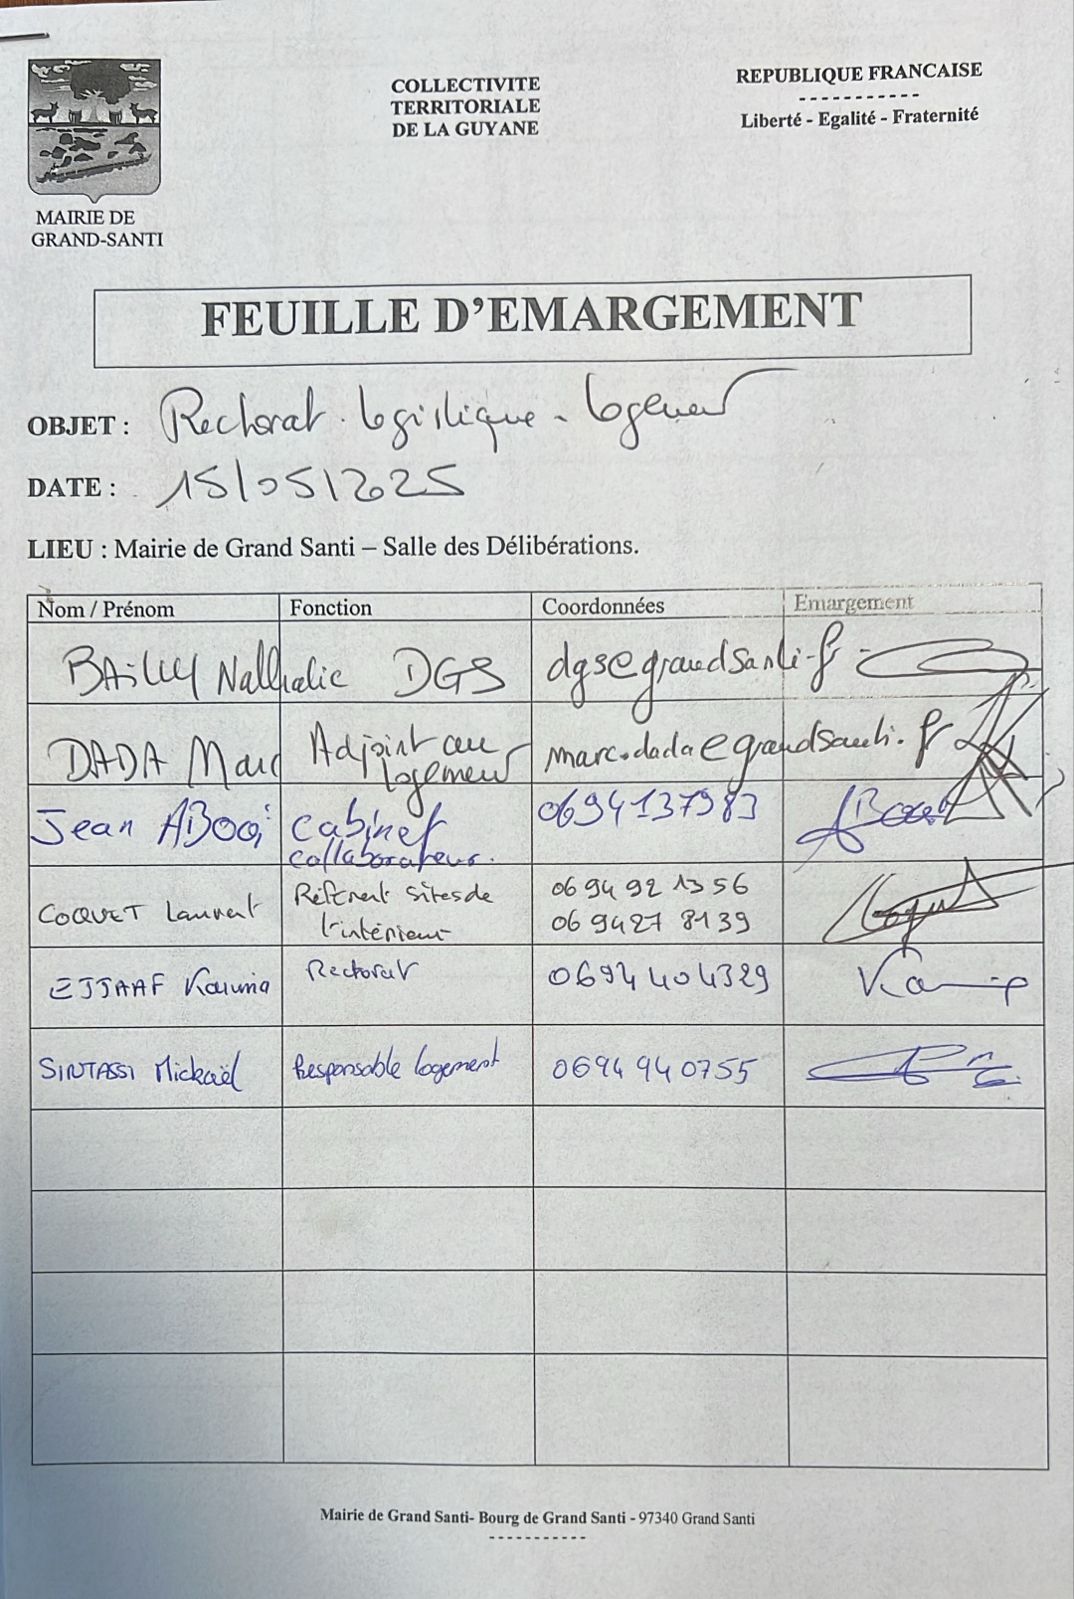 COLLECTIVITE
TERRITORIALE
DE LA GUYANE
REPUBLIQUE FRANCAISE
-----------
Liberté - Egalité - Fraternité
MAIRIE DE
GRAND-SANTI
FEUILLE D'EMARGEMENT
OBJET : Rectorat - logistique - logement
DATE : 15/05/2025
LIEU : Mairie de Grand Santi – Salle des Délibérations.
Nom / Prénom Fonction Coordonnées Emargement
BAILLY Nathalie DGS dgs@grandsanti.fr
DADA Marc Adjoint au
logement marc.dada@grandsanti.fr
Jean ABOOi Cabinet
collaborateur. 0694137983
COQUET Laurent Référent sites de
l'intérieur 06 94 92 13 56
06 94 27 81 39
EJJAAF Karima Rectorat 0694 40 4329
SINTASSI Mickaël Responsable logement 0694 94 0755
Mairie de Grand Santi- Bourg de Grand Santi - 97340 Grand Santi
-----------